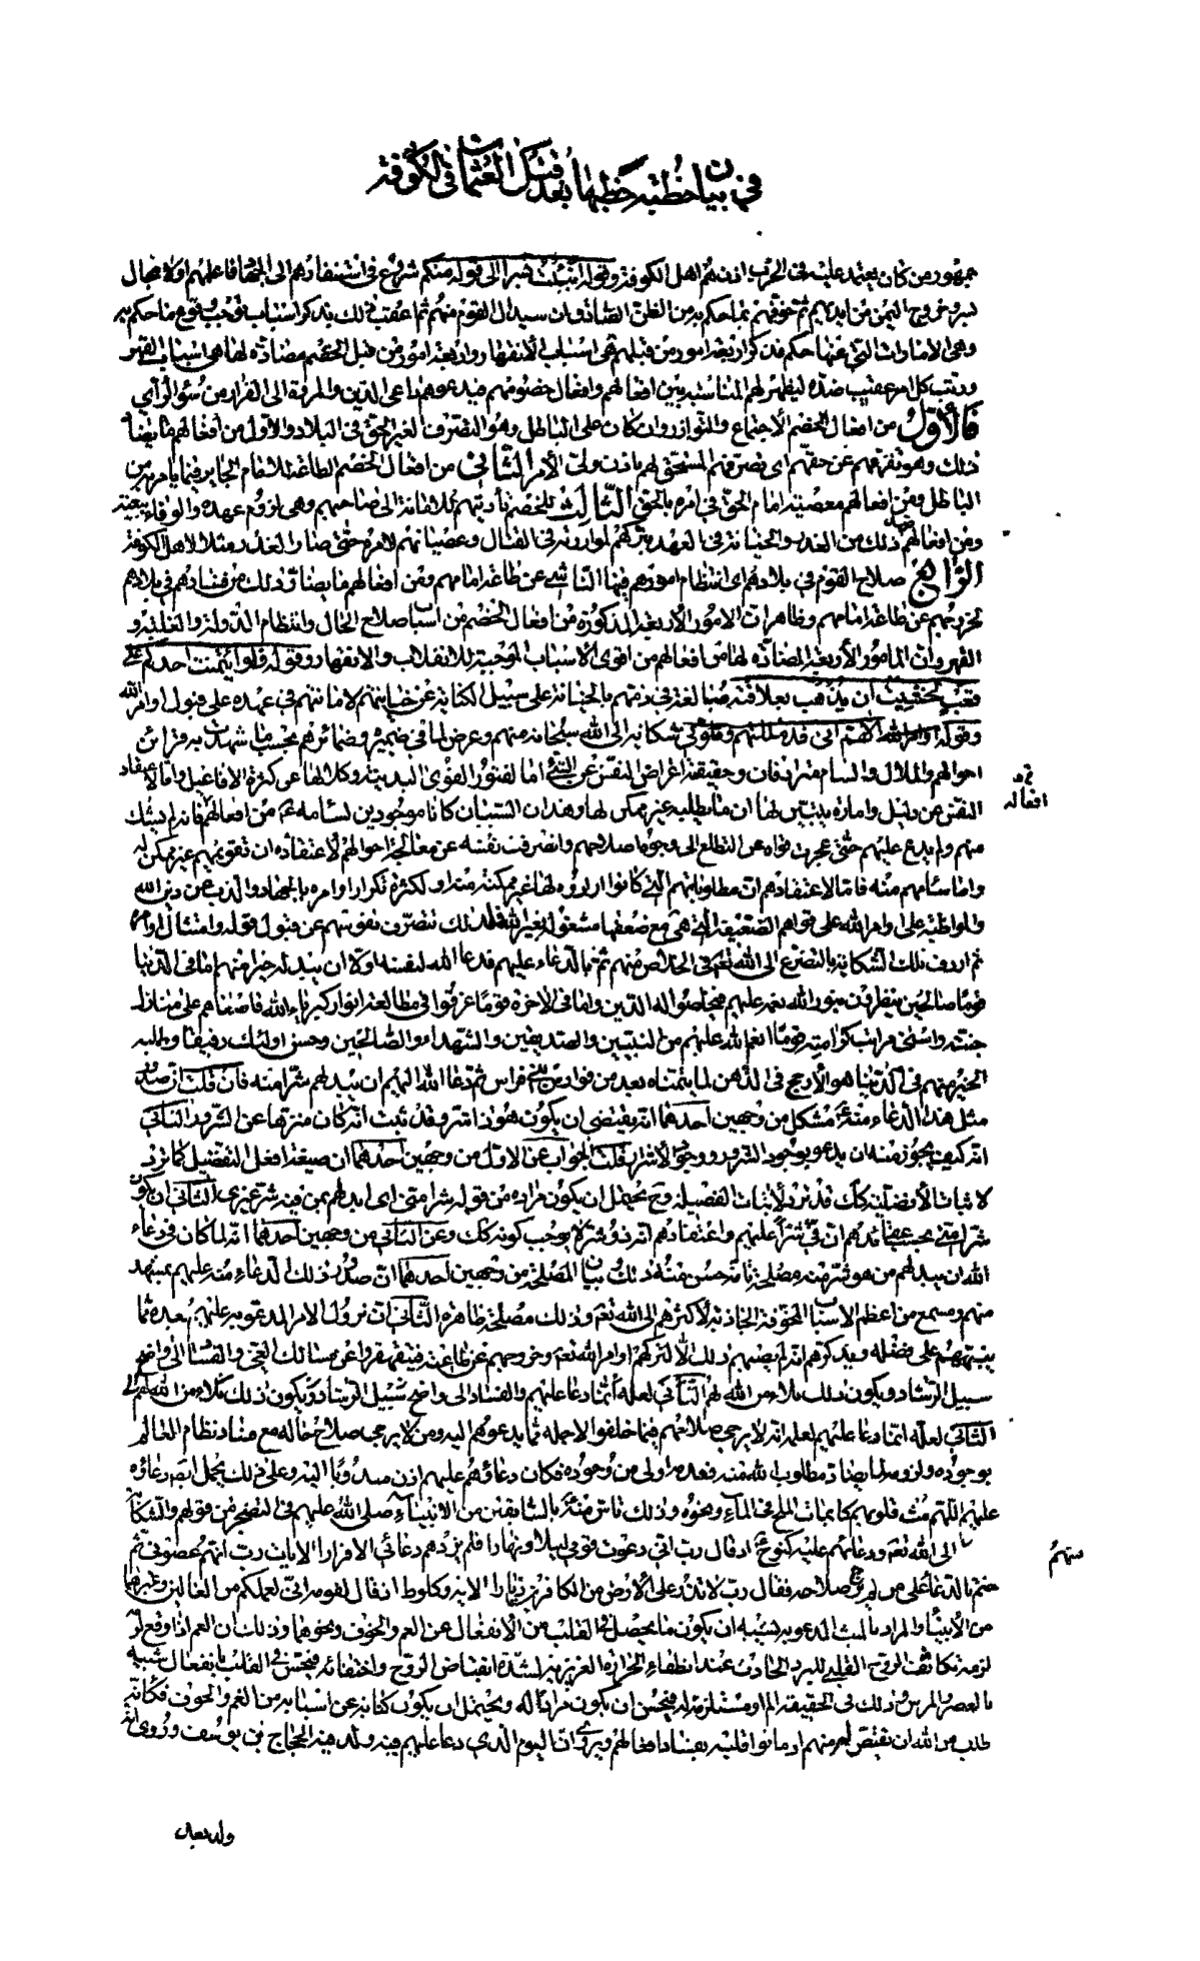 في بيان خطبته خطبها بعد قتل العثمان في الكوفة
جمهور من كان يعتمد عليه في الحرب اذن هم اهل الكوفة وقوله انبئت بسرا الى قوله منكم شروع في استنفارهم الى الجهاد فاعلمهم اولا بحال
بسر وخروج اليمن من ايديهم ثم خوفهم بما حكم به من الظن الصادق ان سيدال القوم منهم ثم اعقب ذلك بذكر اسباب وقوع ما حكم به
وهي الامارات التي عنها حكم فذكر اربعة امور من قبلهم هي اسباب الانقهار واربعة امور من قبل الخصم مضادة لها هي اسباب القهر
ورتب كل امر عقيب ضده ليظهر لهم المناسبة بين افعالهم وافعال خصومهم فيدعوهم داعى الدين والمروة الى الفرار من سوء الرأي
فالأول من افعال الخصم الاجتماع والتوازر وان كان على الباطل وهو التصرف الغير الحق في البلاد والاول من افعالهم ما يضاد
ذلك وهو تفرقهم عن حقهم اى تصرفهم المستحق لهم باذن ولي الأمر الثاني من افعال الخصم الطاعة للامام الجاير فيما يامر به من
الباطل ومن افعالهم معصية امام الحق في امره بالحق الثالث للخصم تأديتهم للامانة الى صاحبهم وهى لزوم عهده والوفاء ببيعته
ومن افعالهم ضد ذلك من الغدر والخيانة في العهد بتركهم لموازرته في القتال وعصيانهم لامره حتى صار الغدر مثلا لاهل الكوفة
الرابع صلاح القوم في بلادهم اى انتظام امورهم فيها الناشى عن طاعة امامهم ومن افعالهم ما يضاد ذلك من فسادهم في بلادهم
لخروجهم عن طاعة امامهم وظاهر ان الامور الأربعة المذكورة من افعال الخصم من اسباب صلاح الحال وانتظام الدولة والغلبة و
القهر وان الامور الأربعة المضادة لها من افعالهم من اقوى الاسباب الموجبة للانقلاب والانقهار وقوله فلو ايتمنت احدكم على
قعب لخشيت ان يذهب بعلاقته مبالغة في ذمهم بالخيانة على سبيل الكناية عن خيانتهم لامانتهم في عهده على قبول اوامر الله
وقوله اللهم انى قد مللتهم وملونى شكاية الى الله سبحانه منهم وعرض لما في ضميره وضمائرهم بحسب ما شهدت به قرائن
احوالهم والملال والسام مترادفان وحقيقته اعراض النفس عن الشىء اما لفتور القوى البدنية وكلالها عن كثرة الافاعيل واما لاعتقاد
النفس عن دليل وامارة يتبين لها ان ما تطلبه غير ممكن لها وهذان السببان كانا موجودين لسامه من افعالهم فانه لم يشك
منهم ولم يدع عليهم حتى عجزت قواه عن التطلع الى وجوه اصلاحهم وانصرفت نفسه عن معالجة احوالهم لاعتقاده ان تقويمهم غير ممكن له
واما سامهم منه فاما لاعتقادهم ان مطلوباتهم التى كانوا ارادوه لها غير ممكنة منه او لكثرة تكرار اوامره بالجهاد والذب عن دين الله
والمواظبة على اوامر الله على قواهم الضعيفة التى هى مع ضعفها مشغولة بغير الله فلذلك تنصرف نفوسهم عن قبول قوله وامتثال اوامره
ثم اردف تلك الشكاية بالتضرع الى الله تعالى في الخلاص منهم ثم بالدعاء عليهم فدعا الله لنفسه اولا ان يبدله خيرا منهم اما في الدنيا
قوما صالحين ينظرون بنور الله نعمه عليهم فيخلصوا له الدين واما في الاخرة قوما غرقوا في مطالعة انوار كبرياء الله فاصفاهم على منازل
جنته واسنى مراتب كرامته قوما انعم الله عليهم من النبيين والصديقين والشهداء والصالحين وحسن اولئك رفيقا وطلبه
الخير منهم في الدنيا هو الأرجح في الذهن لما يتمناه بعد من فوارس بنى فراس ثم دعا الله اليهم ان يبدلهم شرا منه فان قلت ان صدور
مثل هذا الدعاء منه ع مشكل من وجهين احدهما انه يقتضى ان يكون هو ذا شر وقد ثبت انه كان منزها عن الشرور الثاني
انه كيف يجوز منه ان يدعو بوجود الشرور ووجود الاشرار قلت الجواب عن الاول من وجهين احدهما ان صيغة افعل التفضيل كما ترد
لاثبات الأفضلية كك قد ترد لاثبات الفضيلة وح يحتمل ان يكون مراده من قوله شرا منى اى ابدلهم بمن فيه شر غيرى الثاني ان يكون
شرا منى بحسب عقائدهم ان فيه شرا عليهم واعتقادهم انه ذو شر لا يوجب كونه كك وعن الثاني من وجهين احدهما انه لما كان في دعاء
الله ان يبدلهم من هو شر منه مصلحة تامة حسن منه ذلك بيان المصلحة من وجهين احدهما ان صدور ذلك الدعاء منه عليهم بمشهد
منهم ومسمع من اعظم الاسباب المخوفة الجاذبة لاكثرهم الى الله تعالى وذلك مصلحة ظاهرة الثاني ان نزول الامر المدعو به عليهم بعده مما
ينبههم على فضله ويذكرهم انه لم يصبهم ذلك الا لتركهم اوامر الله تعالى وخروجهم عن طاعته فيتقهقروا عن مسالك الغي والفساد الى واضح
سبيل الرشاد ويكون ذلك بلاء من الله لهم الثاني لعله انما دعا عليهم والفساد الى واضح سبيل الرشاد ويكون ذلك بلاء من الله لهم
الثاني لعله انما دعا عليهم لعلمه انه لا يرجى صلاحهم فيما خلقوا لاجله مما يدعوهم اليه ومن لا يرجى صلاح حاله مع فساد نظام العالم
بوجوده ولزومه لما يضاد مطلوب الله منه فعدمه اولى من وجوده فكان دعاؤه عليهم اذن مندوبا اليه وعلى ذلك يحمل ايضا دعاؤه
عليهم اللهم مث قلوبهم كما يماث الملح في الماء ونحوه وذلك تاس منه ع بالسابقين من الانبياء صلى الله عليهم في التضجر من قومهم والشكاية
الى الله تعالى ودعائهم عليه كنوح ع اذ قال رب انى دعوت قومى ليلا ونهارا فلم يزدهم دعائي الا فرارا الايات رب انهم عصونى ثم
ختم بالدعاء على من لم يرج صلاحه فقال رب لا تذر على الأرض من الكافرين ديارا الاية وكلوط اذ قال لقومه انى لعملكم من القالين وغيرهما
من الأنبياء والمراد بالميث المدعو به يشبه ان يكون ما يحصل في القلب من الانفعال عن الغم والخوف ونحوهما وذلك ان الغم اذا وقع لزم
لزمه تكاثف الروح القلبي للبرد الحادث عند انطفاء الحرارة الغريزية لشدة انقباض الروح واختناقه فيحس في القلب بانفعال شبيه
بالعصر والمرس وذلك في الحقيقة الم او مستلزم له فيحسن ان يكون مرادا له ويحتمل ان يكون كناية عن اسبابه من الغم والخوف فكانه
طلب من الله ان يقتص له منهم اذ ماثوا قلبه بفساد افعالهم ويروى ان اليوم الذي دعا عليهم فيه ولد فيه الحجاج بن يوسف وروى انه
افعاله
منهم
ولد بعد